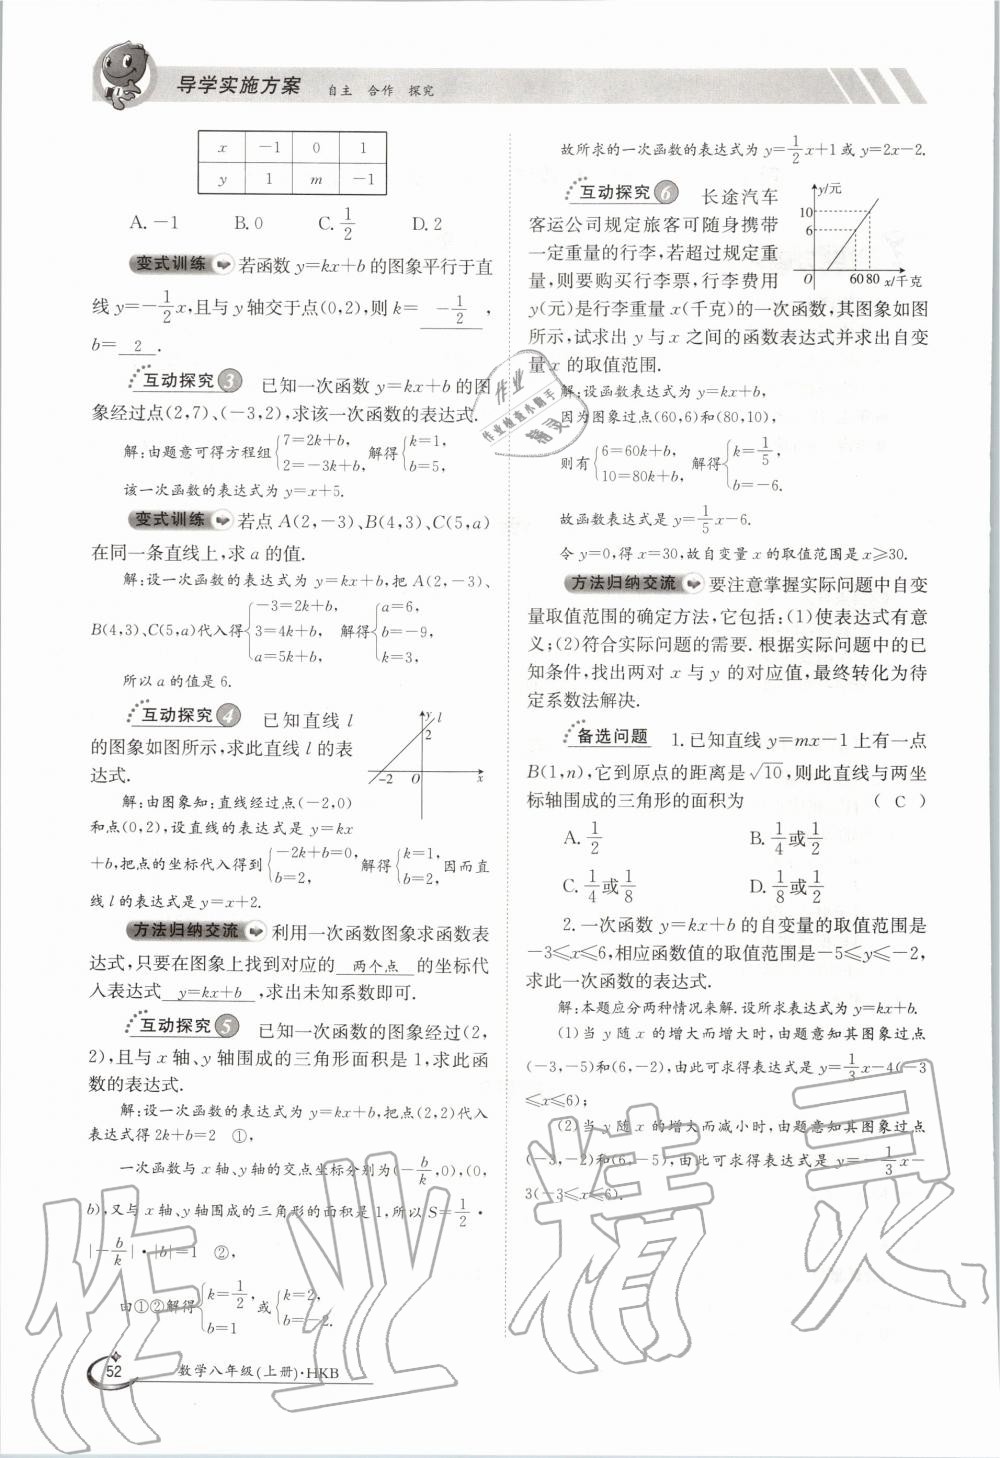 导学实施方案 自主 合作 探究
x −1 0 1
y 1 m −1
A. −1 B. 0 C. 1/2 D. 2
变式训练 若函数 y=kx+b 的图象平行于直
线 y=−1/2x,且与 y 轴交于点(0,2),则 k= −1/2 ,
b= 2 .
互动探究 3 已知一次函数 y=kx+b 的图
象经过点(2,7)、(−3,2),求该一次函数的表达式.
解:由题意可得方程组{7=2k+b, 2=−3k+b, 解得{k=1, b=5,
该一次函数的表达式为 y=x+5.
变式训练 若点 A(2,−3)、B(4,3)、C(5,a)
在同一条直线上,求 a 的值.
解:设一次函数的表达式为 y=kx+b,把 A(2,−3)、
B(4,3)、C(5,a)代入得{−3=2k+b, 3=4k+b, a=5k+b, 解得{a=6, b=−9, k=3,
所以 a 的值是 6.
互动探究 4 已知直线 l
的图象如图所示,求此直线 l 的表
达式.
y l 2 −2 O x
解:由图象知:直线经过点(−2,0)
和点(0,2),设直线的表达式是 y=kx
+b,把点的坐标代入得到{−2k+b=0, b=2, 解得{k=1, b=2, 因而直
线 l 的表达式是 y=x+2.
方法归纳交流 利用一次函数图象求函数表
达式,只要在图象上找到对应的 两个点 的坐标代
入表达式 y=kx+b ,求出未知系数即可.
互动探究 5 已知一次函数的图象经过(2,
2),且与 x 轴、y 轴围成的三角形面积是 1,求此函
数的表达式.
解:设一次函数的表达式为 y=kx+b,把点(2,2)代入
表达式得 2k+b=2 ①,
一次函数与 x 轴、y 轴的交点坐标分别为(−b/k,0),(0,
b),又与 x 轴、y 轴围成的三角形的面积是 1,所以 S=1/2·
|−b/k|·|b|=1 ②,
由①②解得{k=1/2, b=1 或{k=2, b=−2.
故所求的一次函数的表达式为 y=1/2x+1 或 y=2x−2.
互动探究 6 长途汽车
客运公司规定旅客可随身携带
一定重量的行李,若超过规定重
量,则要购买行李票,行李费用
y/元 10 6 O 60 80 x/千克
y(元)是行李重量 x(千克)的一次函数,其图象如图
所示,试求出 y 与 x 之间的函数表达式并求出自变
量 x 的取值范围.
解:设函数表达式为 y=kx+b,
因为图象过点(60,6)和(80,10),
则有{6=60k+b, 10=80k+b, 解得{k=1/5, b=−6.
故函数表达式是 y=1/5x−6.
令 y=0,得 x=30,故自变量 x 的取值范围是 x≥30.
方法归纳交流 要注意掌握实际问题中自变
量取值范围的确定方法,它包括:(1)使表达式有意
义;(2)符合实际问题的需要. 根据实际问题中的已
知条件,找出两对 x 与 y 的对应值,最终转化为待
定系数法解决.
备选问题 1.已知直线 y=mx−1 上有一点
B(1,n),它到原点的距离是√10,则此直线与两坐
标轴围成的三角形的面积为 ( C )
A. 1/2 B. 1/4或1/2
C. 1/4或1/8 D. 1/8或1/2
2.一次函数 y=kx+b 的自变量的取值范围是
−3≤x≤6,相应函数值的取值范围是−5≤y≤−2,
求此一次函数的表达式.
解:本题应分两种情况来解.设所求表达式为 y=kx+b.
(1)当 y 随 x 的增大而增大时,由题意知其图象过点
(−3,−5)和(6,−2),由此可求得表达式是 y=1/3x−4(−3
≤x≤6);
(2)当 y 随 x 的增大而减小时,由题意知其图象过点
(−3,−2)和(6,−5),由此可求得表达式是 y=−1/3x−
3(−3≤x≤6).
52 数学八年级(上册)·HKB
作业
作业检查小助手
精灵
作业精灵